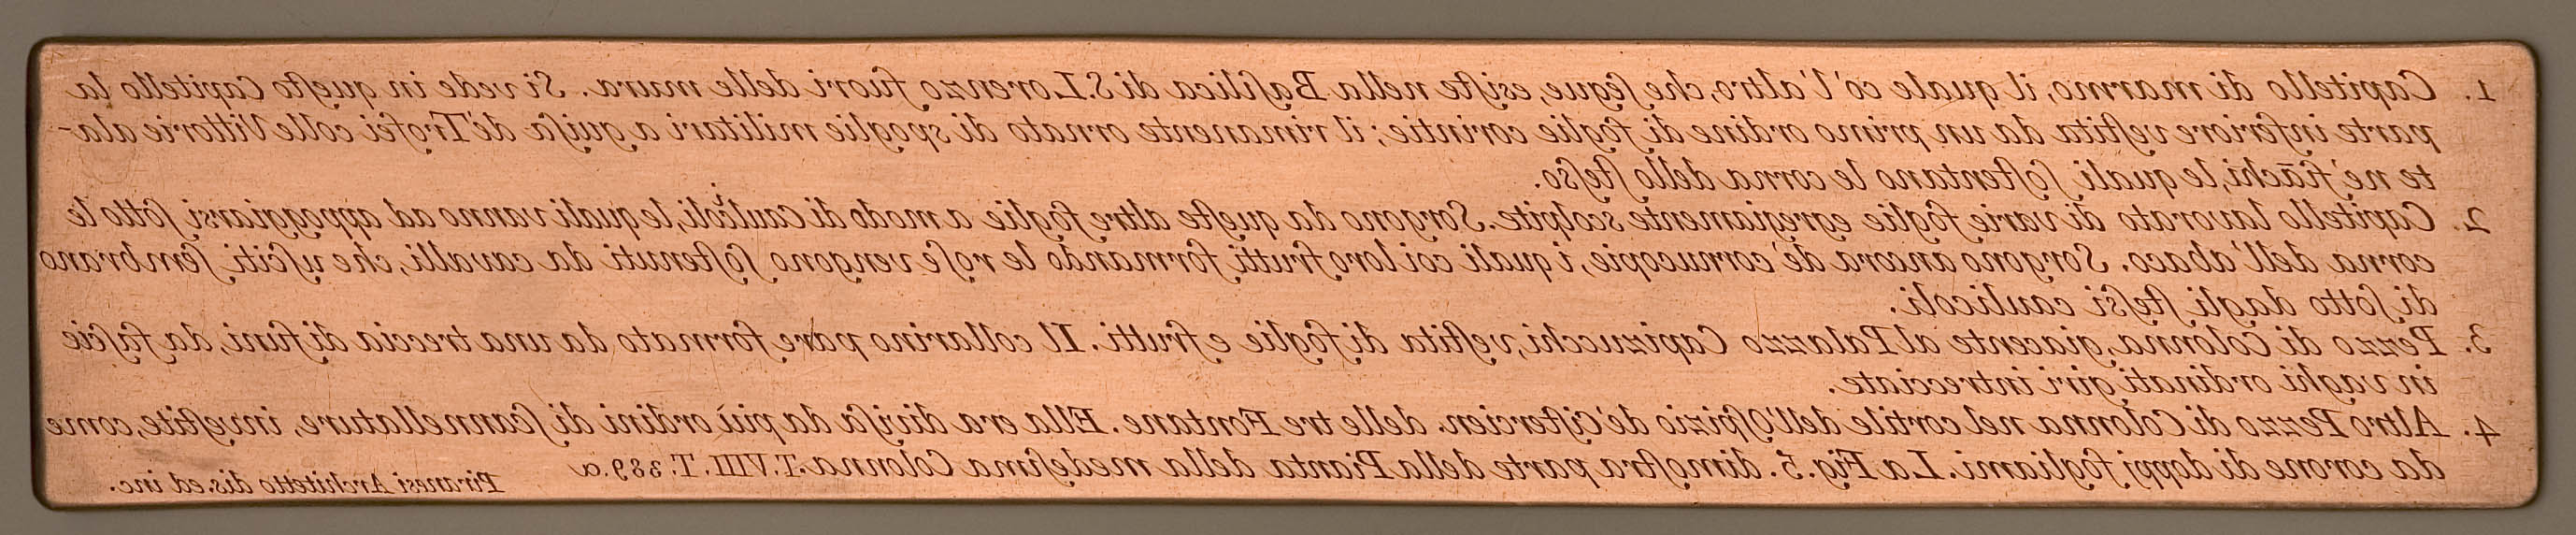 1. Capitello di marmo, il quale co'l'altro, che ſegue, esiſte nella Baſilica di S. Lorenzo fuori delle mura. Si vede in queſto Capitello la
parte inferiore veſtita da un primo ordine di foglie corintie; il rimanente ornato di spoglie militari a guiſa de' Trofei colle Vittorie ala-
te ne' fiāchi, le quali ſoſtentano le corna dello ſteſso.
2. Capitello lavorato di varie foglie egregiamente scolpite. Sorgono da queſte altre foglie a modo di caulicoli, le quali vanno ad appoggiarsi ſotto le
corna dell'abaco. Sorgono ancora de' cornucopie, i quali coi loro frutti formando le roſe vengono ſoſtenuti da cavalli, che uſciti ſembrano
di ſotto dagli ſteſsi caulicoli.
3. Pezzo di Colonna, giacente al Palazzo Capizucchi, veſtita di foglie e frutti. Il collarino pare formato da una treccia di funi, da faſcie
in vaghi ordinati giri intrecciate.
4. Altro Pezzo di Colonna nel cortile dell'Oſpizio de' Ciſtercien. delle tre Fontane. Ella era diviſa da più ordini di ſcannellature, inveſtite, come
da corone di doppj fogliami. La Fig. 5. dimoſtra parte della Pianta della medeſima Colonna. T. VIII. T. 389. a
Piranesi Architetto dis. ed inc.